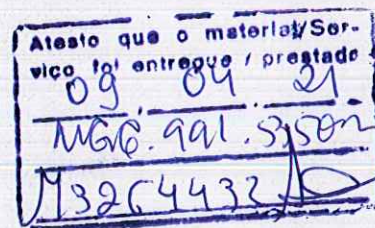 Atesto que o material/Ser-
viço foi entregue / prestado
09 04 21
M3264432